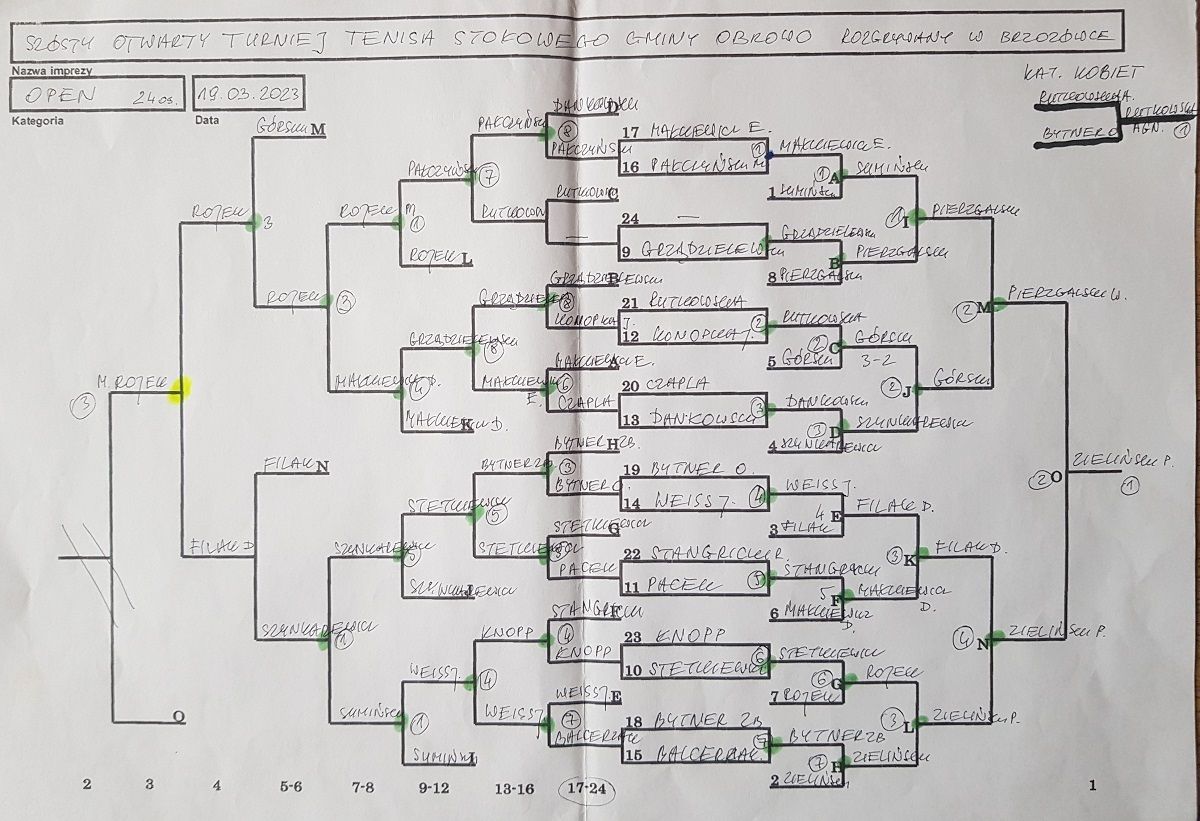 SZÓSTY OTWARTY TURNIEJ TENISA STOŁOWEGO GMINY OBROWO ROZGRYWANY W BRZOZÓWCE
Nazwa imprezy
OPEN 24 os. 19.03.2023
Kategoria Data
KAT. KOBIET
RUTKOWSKA A.
BYTNER O
RUTKOWSKA
AGN. 1
GÓRSKI M
ROJEK 3
ROJEK 3
M. ROJEK
3
FILAK N
FILAK D
SZYNKAREWICZ 1
O
ROJEK M 1
ROJEK L
MAĆKIEWICZ D.
MAĆKIEWICZ D.
K
SZYNKAREWICZ
SZYNKAREWICZ
SUMIŃSKI 1
SUMIŃSKI I
PAKCZYŃSKI 7
GRZĄDZIELEWSKI 8
STETKIEWICZ 5
WEISS J. 4
PAKCZYŃSKI 8
RUTKOWSKA
GRZĄDZIELEWSKI 8
MAĆKIEWICZ E. 6
BYTNER ZB 3
STETKIEWICZ
KNOPP 4
WEISS J 7
DANKOWSKI D
PAKCZYŃSKI
RUTKOWSKA C
—
GRZĄDZIELEWSKI B
KONOPKA J.
MAĆKIEWICZ E. A
CZAPLA
BYTNER ZB. H
BYTNER O.
STETKIEWICZ G
PACEK
STANGRICKI F
KNOPP
WEISS J. E
BALCERZAK
17 MAĆKIEWICZ E.
16 PAKCZYŃSKI M 1
24 —
9 GRZĄDZIELEWSKI
21 RUTKOWSKA
12 KONOPKA J. 2
20 CZAPLA
13 DANKOWSKI 3
19 BYTNER O.
14 WEISS J. 4
22 STANGRICKI R.
11 PACEK 5
23 KNOPP
10 STETKIEWICZ 6
18 BYTNER ZB
15 BALCERZAK 7
MAĆKIEWICZ E.
1 SUMIŃSKI
1 A
GRZĄDZIELEWSKI
8 PIERZGALSKI
B
RUTKOWSKA
5 GÓRSKI
2 C
DANKOWSKI
4 SZYNKAREWICZ
3 D
WEISS J.
3 FILAK
4 E
STANGRICKI
6 MAĆKIEWICZ D.
5 F
STETKIEWICZ
7 ROJEK
6 G
BYTNER ZB
2 ZIELIŃSKI
7 H
SUMIŃSKI
PIERZGALSKI
1 I
GÓRSKI
3-2
SZYNKAREWICZ
2 J
FILAK D.
MAĆKIEWICZ D.
3 K
ROJEK
ZIELIŃSKI
3 L
PIERZGALSKI
GÓRSKI
2 M
FILAK D.
ZIELIŃSKI P.
4 N
PIERZGALSKI W.
ZIELIŃSKI P.
2 O
ZIELIŃSKI P.
1
2 3 4 5-6 7-8 9-12 13-16 17-24 1